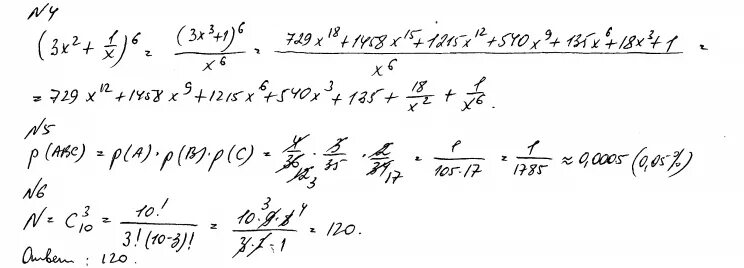 N4
(3x² + 1/x)⁶ = (3x³+1)⁶/x⁶ = (729x¹⁸+1458x¹⁵+1215x¹²+540x⁹+135x⁶+18x³+1)/x⁶ =
= 729x¹²+1458x⁹+1215x⁶+540x³+135+18/x²+1/x⁶.
N5
p(ABC) = p(A)·p(B)·p(C) = 4/36 12 3 · 3/35 · 2/34 17 = 1/(105·17) = 1/1785 ≈ 0,0005 (0,05%)
N6
N = C₁₀³ = 10!/(3!(10-3)!) = (10·9 3·8 4)/(3·2·1) = 120.
Ответ: 120.